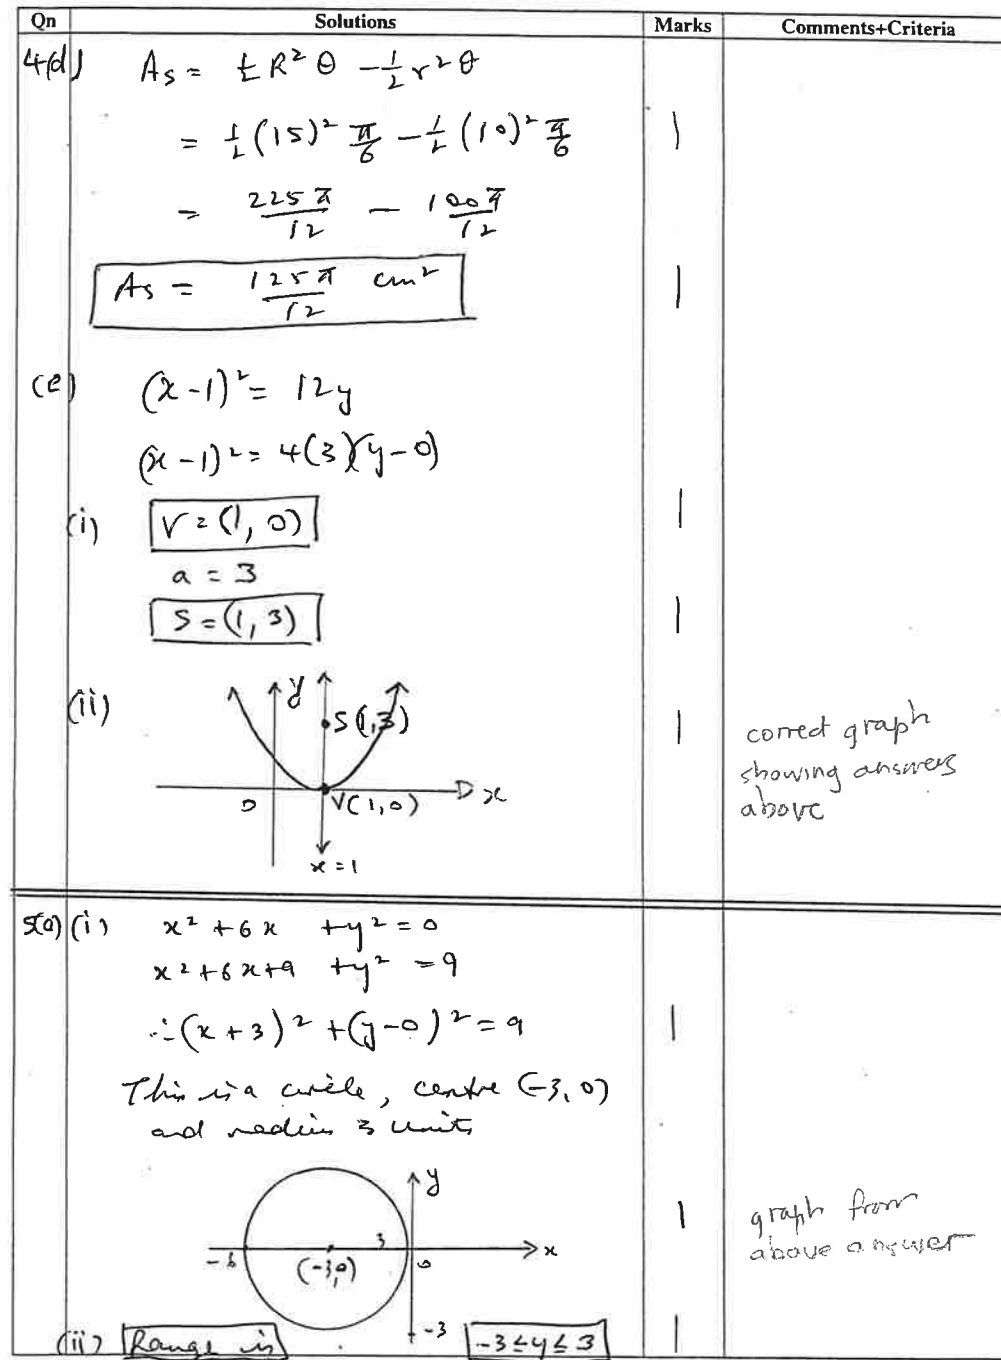 Qn Solutions Marks Comments+Criteria
4(d) As = ½ R² θ - ½ r² θ
= ½ (15)² π/6 - ½ (10)² π/6 1
= 225π/12 - 100π/12
As = 125π/12 cm² 1
(e) (x-1)² = 12y
(x-1)² = 4(3)(y-0)
(i) V = (1, 0) 1
a = 3
S = (1, 3) 1
(ii) y S(1,3) 1 correct graph
showing answers
above
0 V(1,0) x
x = 1
5(a) (i) x² + 6x + y² = 0
x² + 6x + 9 + y² = 9
∴ (x+3)² + (y-0)² = 9 1
This is a circle, centre (-3, 0)
and radius 3 units
y
1 graph from
above answer
-6 (-3,0) 3 0 x
-3
(ii) Range is -3 ≤ y ≤ 3 1